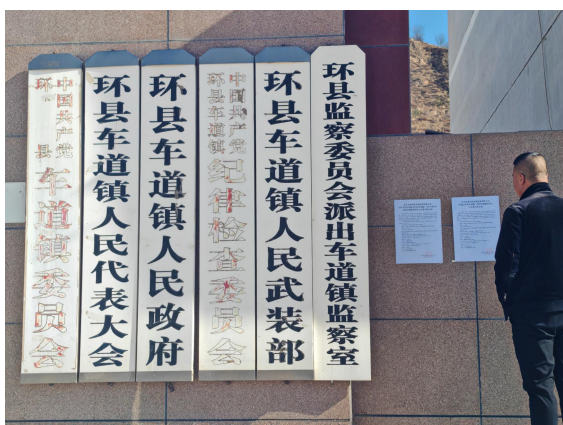 中国共产党
环县
车道镇委员会
环县车道镇人民代表大会
环县车道镇人民政府
中国共产党
环县车道镇
纪律检查委员会
环县车道镇人民武装部
环县监察委员会派出车道镇监察室